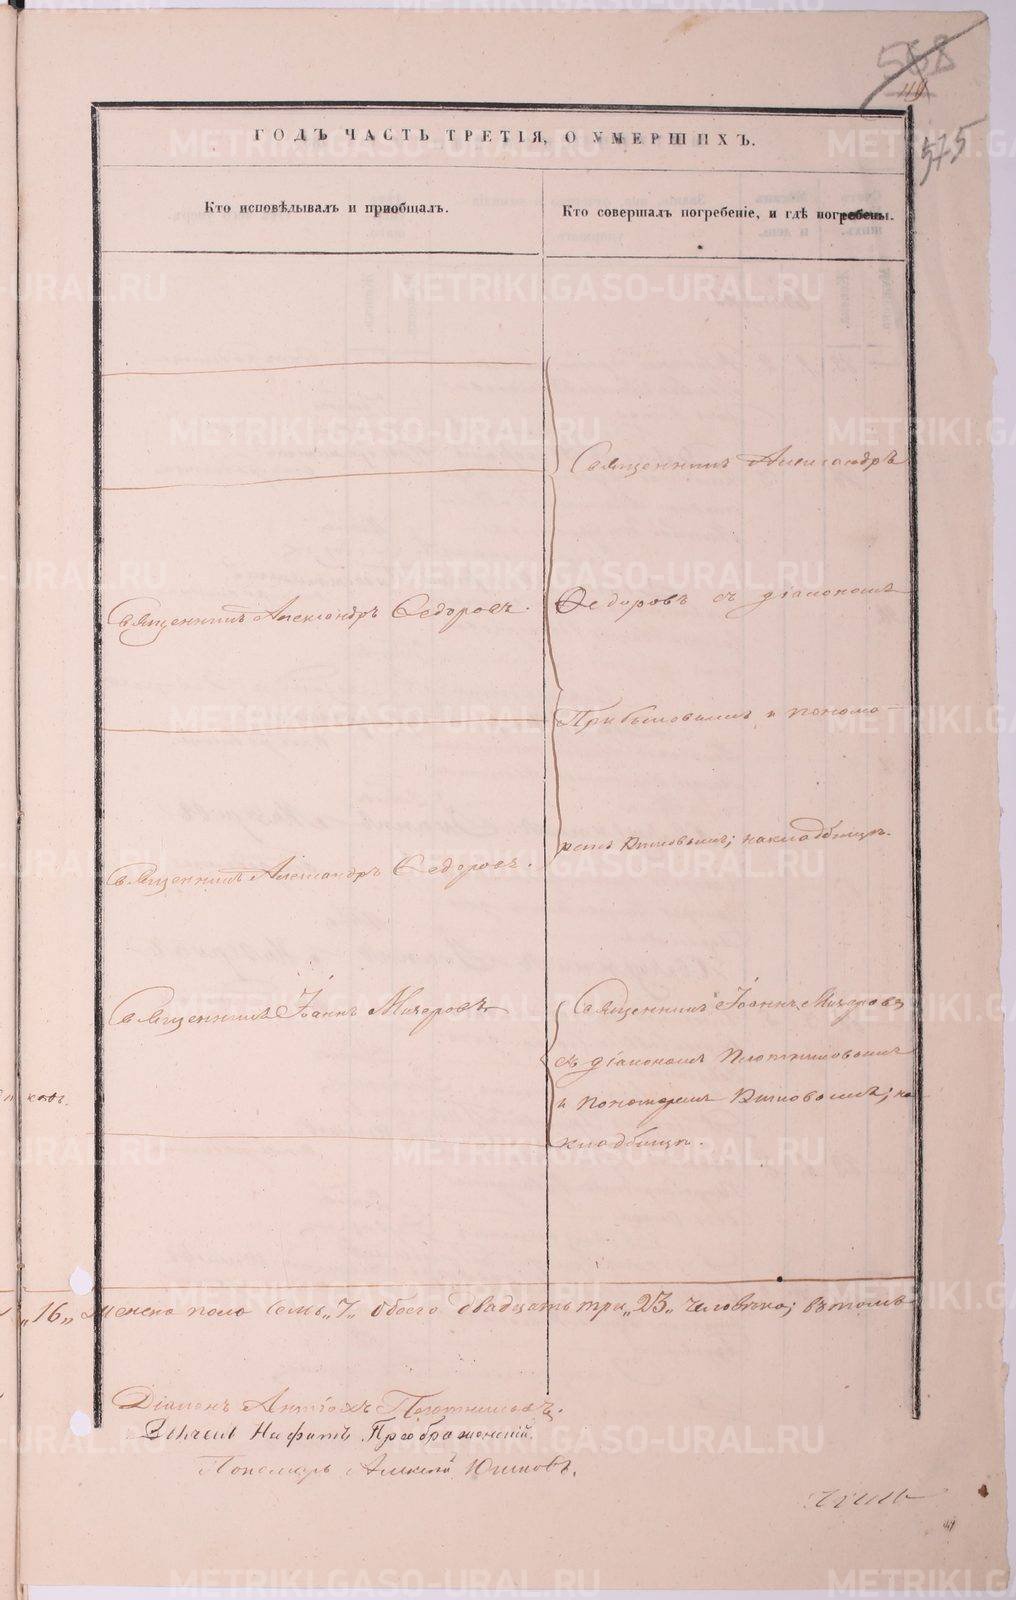 568
575
ГОДЪ ЧАСТЬ ТРЕТІЯ, О УМЕРШИХЪ.
Кто исповѣдывалъ и пріобщалъ.
Кто совершалъ погребеніе, и гдѣ погребены.
Священникъ Александръ
Священникъ Александръ Ѳедоровъ.
Ѳедоровъ съ діакономъ
и пономо-
Священникъ Александръ Ѳедоровъ.
ремъ накладбищѣ.
Священникъ Іоаннъ Мичуровъ
Священникъ Іоаннъ Мичуровъ
съ діакономъ Плотниковымъ
и Пономаремъ на
кладбищѣ.
„16„ Женска пола Семь „7„ обоего двадцать три „23„ человѣка; втомъ
Діаконъ Антіохъ Плотниковъ.
Преображенскій.
Пономарь Алексѣй
METRIKI.GASO-URAL.RU